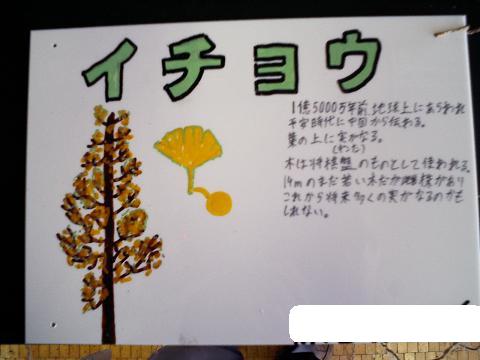 イチョウ
1億5000万年前 地球上にあらわれ
平安時代に中国から伝わる。
葉の上に実がなる。
(わた)
木は将棋盤のものとして使われる。
14mのまだ若い木だが 模様があり
これから将来多くの実がなるのかも
しれない。